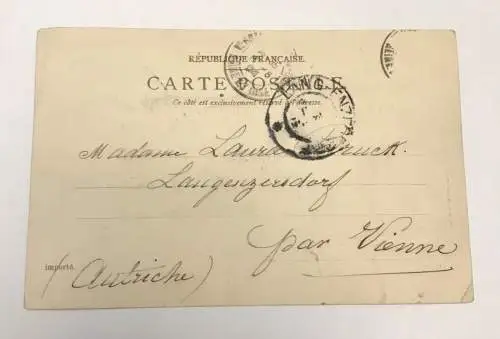 RÉPUBLIQUE FRANÇAISE.
CARTE POSTALE
Ce côté est exclusivement réservé à l'adresse.
Madame Laura Druck.
Langenzersdorf
par Vienne
importé.
(Autriche)